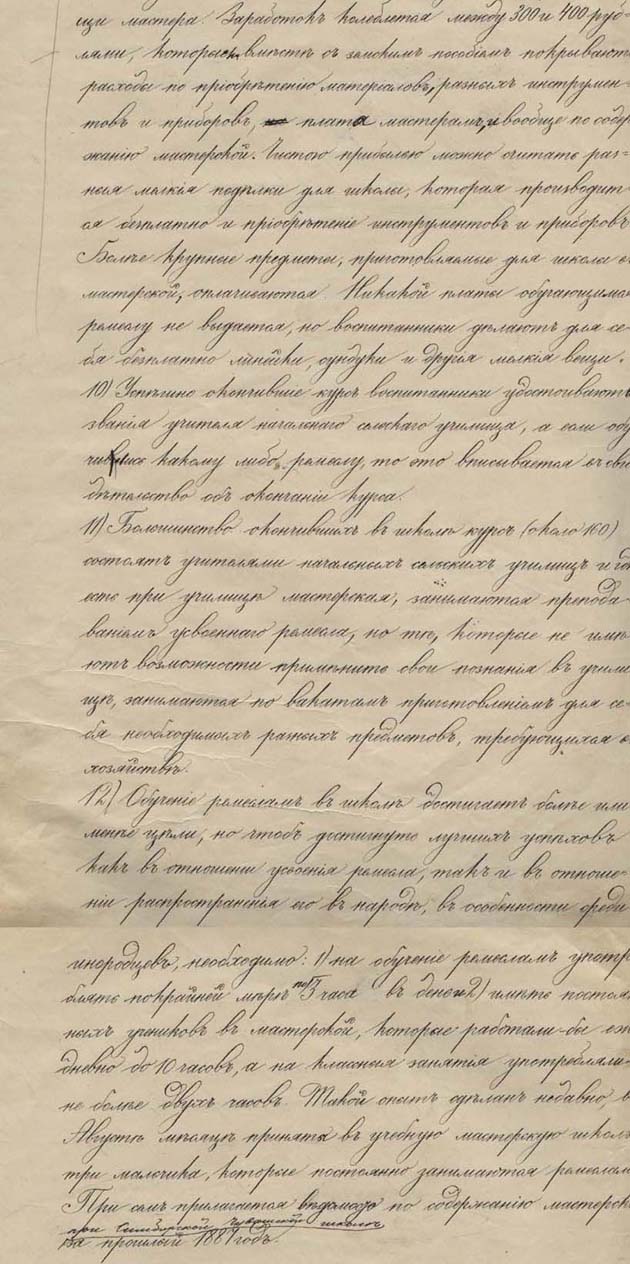 щи мастера. Заработокъ колеблется между 300 и 400 руб-
лями, которые вмѣстѣ съ земскимъ пособіемъ покрываютъ
расходы по пріобрѣтенію матеріаловъ, разныхъ инструмен-
товъ и приборовъ, плата мастерамъ, и вообще по содер
жанію мастерской. Чистою прибылью можно считать раз-
ныя мелкія подѣлки для школы, которая производит
ся безплатно и пріобрѣтеніе инструментовъ и приборовъ
Болѣе крупные предметы, приготовляемые для школы въ
мастерской, оплачиваются. Никакой платы обучающимся
ремеслу не выдается, но воспитанники дѣлаютъ для се-
бя безплатно линейки, сундуки и другія мелкія вещи.
10) Успѣшно окончившіе курсъ воспитанники удостоиваютъ
званія учителя начальнаго сельскаго училища, а если обу
чились какому либо ремеслу, то это вписывается въ сви
дѣтельство объ окончаніи курса.
11) Большинство окончившихъ въ школѣ курсъ (около 160)
состоятъ учителями начальныхъ сельскихъ училищъ и гдѣ
есть при училищѣ мастерская, занимаются препода-
ваніемъ усвоеннаго ремесла, но тѣ, которые не имѣ-
ютъ возможности примѣнить свои познанія въ учили
щѣ, занимаются по вакатамъ приготовленіемъ для се-
бя необходимыхъ разныхъ предметовъ, требующихся въ
хозяйствѣ.
12) Обученіе ремесламъ въ школѣ достигаетъ болѣе или
менѣе цѣли, но чтобъ достигнуть лучшихъ успѣховъ
какъ въ отношеніи усвоенія ремесла, такъ и въ отноше-
ніи распространенія его въ народѣ, въ особенности среди
инородцевъ, необходимо: 1) на обученіе ремесламъ употр
блять по крайней мѣрѣ по 3 часа въ день и 2) имѣть постоян
ныхъ учениковъ въ мастерской, которые работали-бы еже
дневно до 10 часовъ, а на классныя занятія употребляли
не болѣе двухъ часовъ. Такой опытъ сдѣланъ недавно, въ
Августѣ мѣсяцѣ приняты въ учебную мастерскую школы
три мальчика, которые постоянно занимаются ремеслам
При семъ прилагается вѣдомость по содержанію мастерск
при Симбирской чувашской школѣ
за прошлый 1887 годъ.